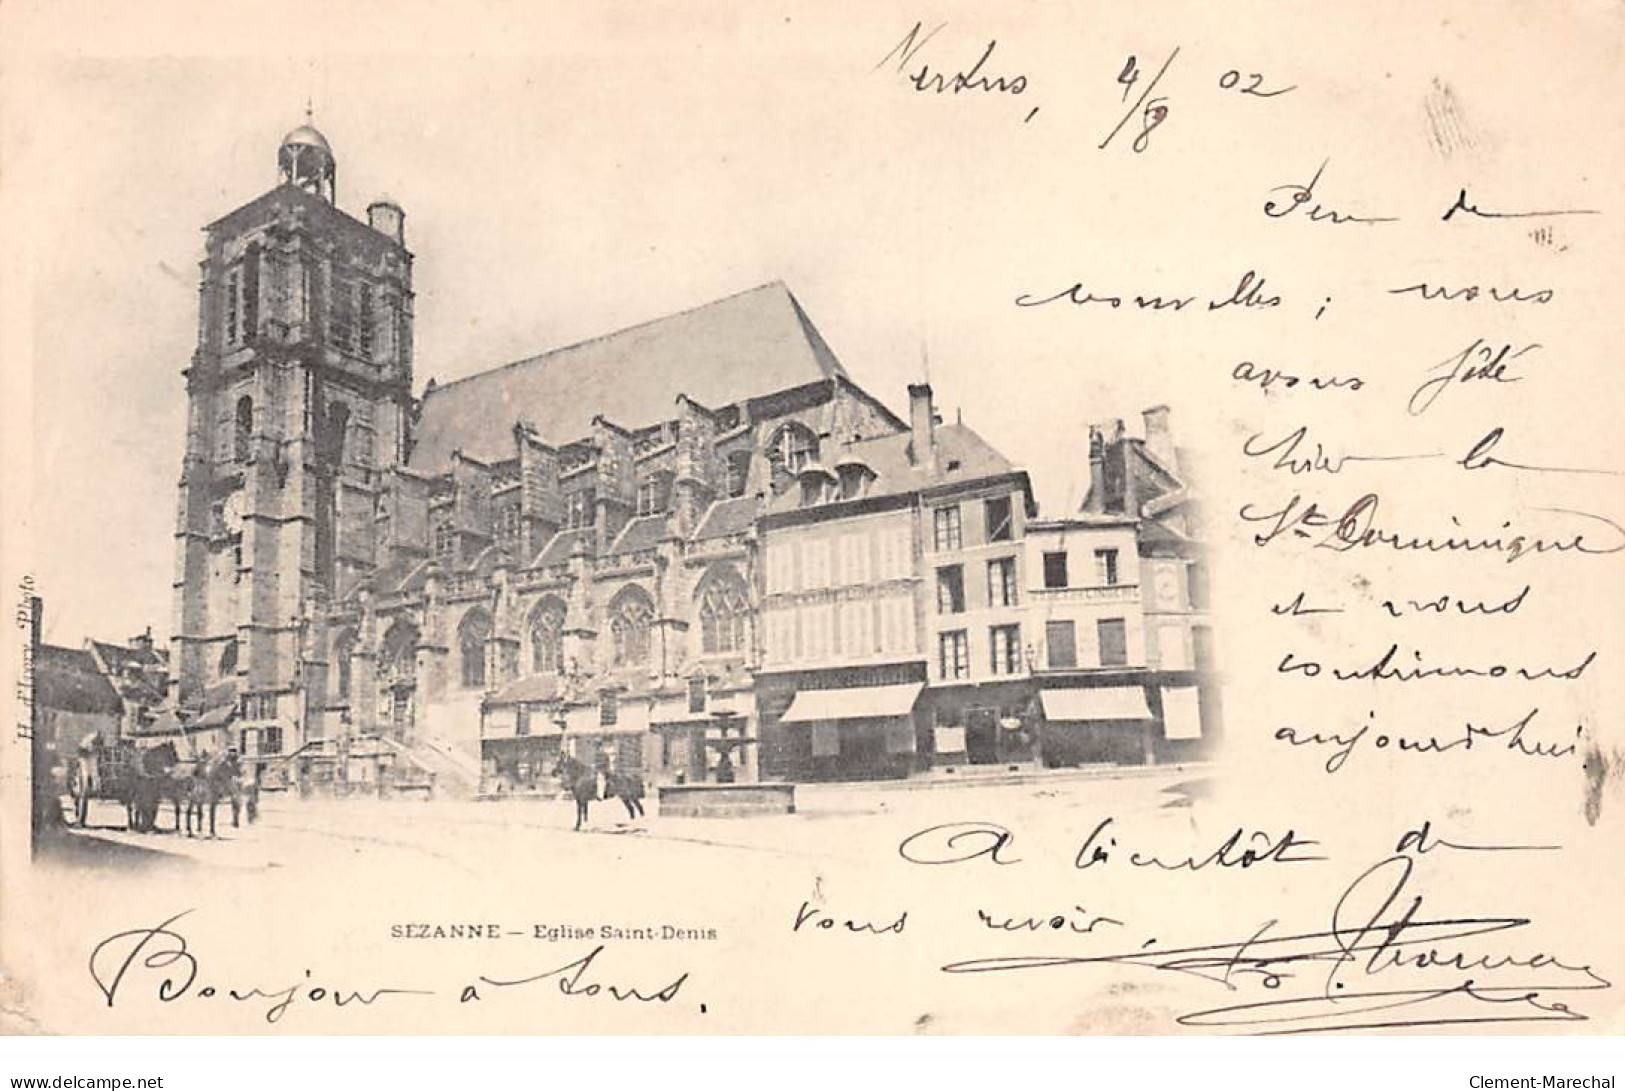 Vertus, 4/8 02
Peu de
nouvelles ; nous
avons fêté
hier la
St Dominique
et nous
continuons
aujourd'hui.
A bientôt de
vous revoir,
H. d'Ivory, Photo.
SÉZANNE — Eglise Saint-Denis
Bonjour à tous.
delcampe.net
Clement-Marechal